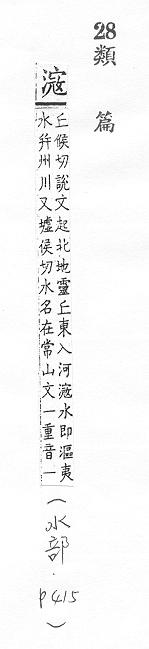 28 類篇
滱
丘候切說文起北地靈丘東入河滱水即漚夷
水幷州川又墟侯切水名在常山文一重音一
(水部. p415)